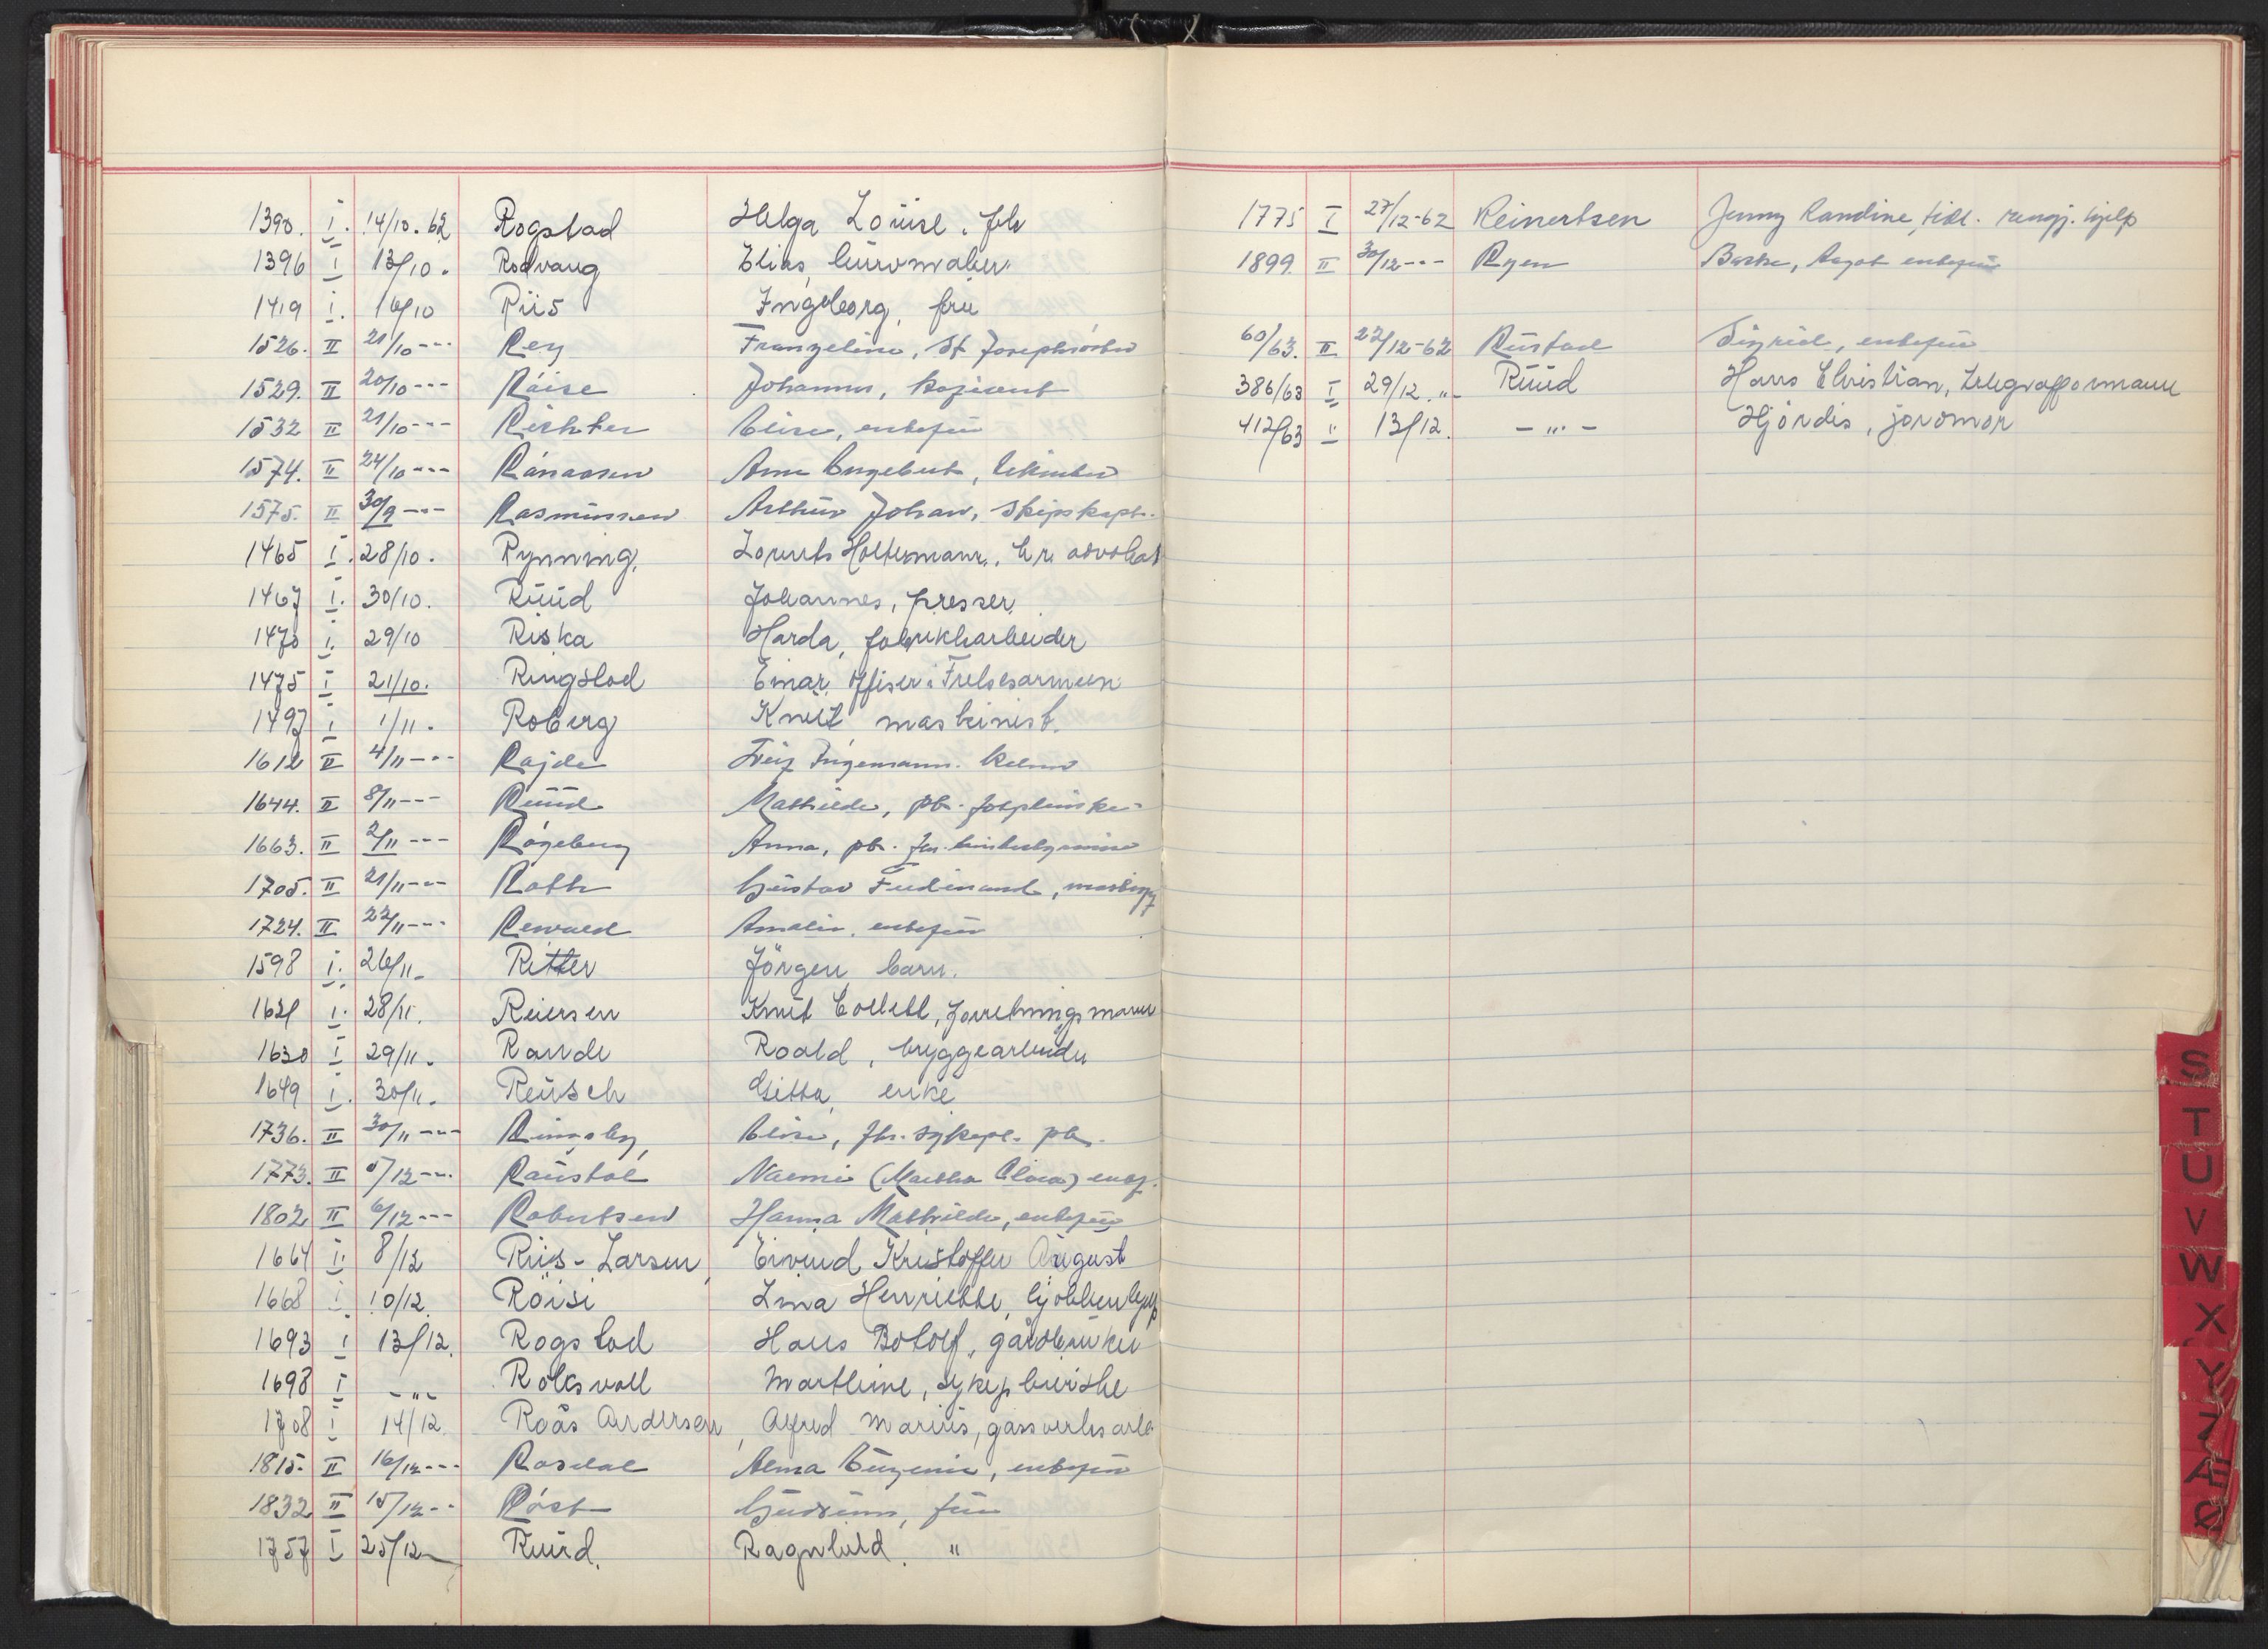 1390. I. 14/10. 62 Rogstad Helga Louise, frk
1396 I 13/10. Rodvang Elias,
1419 I. 16/10 Riis Ingeborg, fru
1526. II 21/10 --- Rey Franzeline, St. Josephsöster
1529. II 20/10 --- Röise Johannes,
1532 II 21/10 --- Richter Elise, enkefru
1574. II 24/10 --- Rånaasen Arne Engebret,
1575. II 30/9 --- Rasmussen Arthur Johan, skipskapt.
1465 I. 28/10. Rynning, Lorents Holtermann, h.r. advokat
1467 I. 30/10. Ruud Johannes, presser
1470 I. 29/10 Riska Harda, fabrikkarbeider
1475 I 21/10. Ringstad Einar, offiser i Frelsesarmeen
1497 I 1/11. Roberg Knut, maskinist.
1612 II 4/11 --- Rajde Ingemann.
1644. II 8/11 --- Ruud Mathilde, pb.
1663. II 2/11 --- Rögeberg Anna, pb.
1705. II 21/11 --- Roth Gustav Ferdinand,
1724. II 22/11 --- Rewald Amalie, enkefru
1598 I. 26/11. Ritter Jörgen, barn.
1621 I. 28/11. Reiersen Knut Collett, forretningsmann
1630 I 29/11. Rande Roald, bryggearbeider
1649 I. 30/11. Reusch Gitta, enke
1736. II 30/11 --- Ringsby, Elise, fhv. sykepl. pb.
1773. II 5/12 --- Raustøl Naemi (Martha Clara) enkf.
1802 II 6/12 --- Robertsen Hanna Mathilde, enkefru
1664 I. 8/12 Riis-Larsen, Eivind Kristoffer August
1668 I 10/12. Röisi Lina Henriette, kjökkenhjelp
1693 I 13/12. Rogstad Hans Botolf, gårdbruker
1698 I - " - Roksvoll Marthine, sykepleierske
1708 I 14/12. Roås Andersen, Alfred Marius, gassverksarb
1815. II 16/12 --- Rosdal Alma Eugenie, enkefru
1832 II 15/12 -- Röst Gudrun, fru
1757 I 25/12 Ruud. Ragnhild. "
1775 I 27/12-62 Reinertsen Jenny Randine, tidl. rengj. hjelp
1899. II 30/12 --- Ryen Aagot enkefru
60/63. II 22/12-62 Rustad Sigrid, enkefru
386/63 I 29/12. " - Ruud Hans Christian, telegrafformann
412/63 I 13/12. - " - Hjördis, jordmor
S
T
U
V
W
X
Y
Z
Æ
Ø